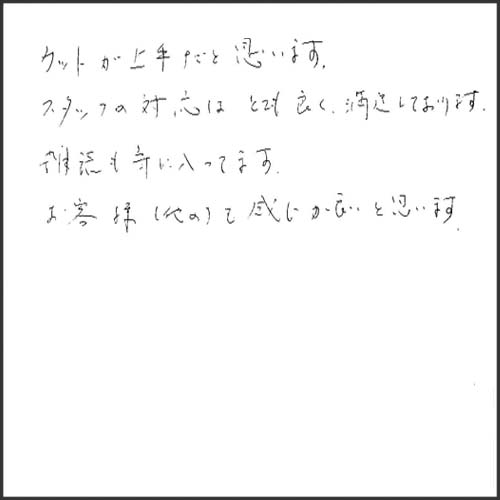 カットが上手だと思います。
スタッフの対応は とても良く、満足しております。
雑誌も気に入ってます。
お客様(他の)も感じが良いと思います。